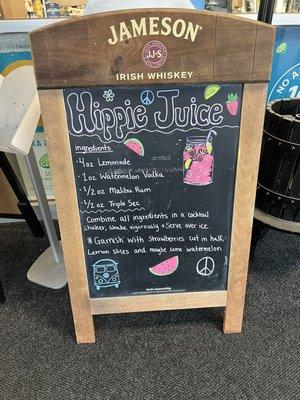 JAMESON
JJ&S
IRISH WHISKEY
Hippie Juice
ingredients:
4oz Lemonade
1oz Watermelon Vodka
1/2 oz Malibu Rum
1/2 oz Triple Sec
Combine all ingredients in a cocktail
shaker, shake vigorously + Serve over ice.
* Garnish with Strawberries cut in half,
Lemon slices and maybe some watermelon.